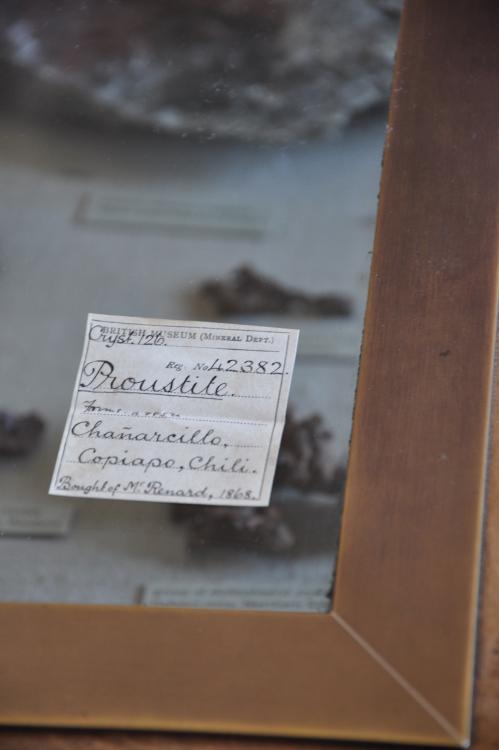 BRITISH MUSEUM (MINERAL DEPT.)
Cryst. 126.
Reg No 42382.
Proustite.
Chañarcillo,
Copiapo, Chili.
Bought of Mr Renard, 1868.